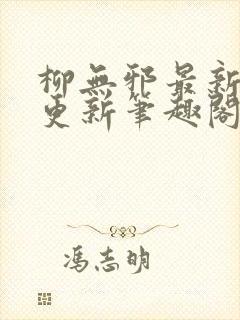 柳無邪最新
更新筆趣閣
馮志明